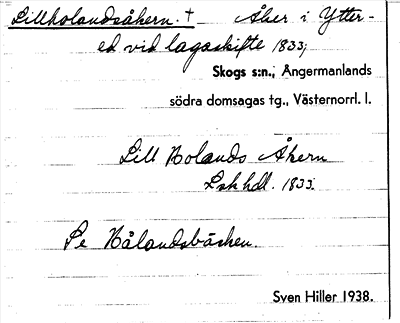 Lillholandsåkern. † Åker i Ytter-
ed vid lagaskifte 1833;
Skogs s:n., Ångermanlands
södra domsagas tg., Västernorrl. l.
Lill Holands Åkern
Lskhdl. 1833.
Se Hålandsbäcken.
Sven Hiller 1938.